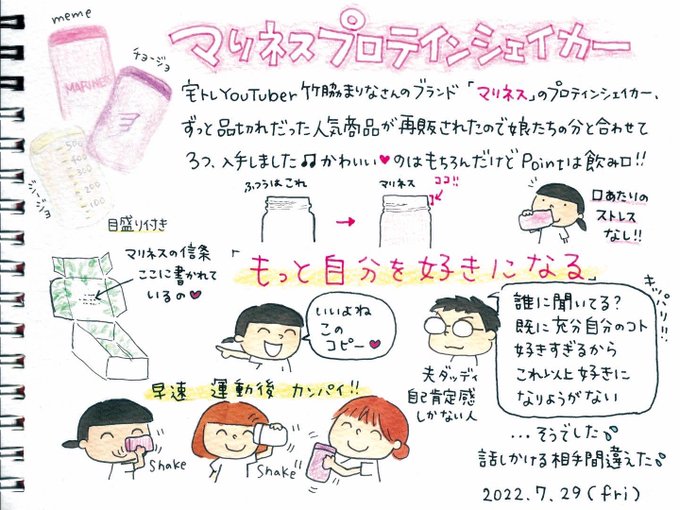 meme
マリネスプロテインシェイカー
チョージョ
MARINESS
宅トレYouTuber竹脇まりなさんのブランド「マリネス」のプロテインシェイカー、
ずっと品切れだった人気商品が再販されたので娘たちの分と合わせて
3つ、入手しました♫かわいい♥のはもちろんだけどPointは飲み口!!
500
400
300
200
100
ジージョ
目盛り付き
ふつうはこれ
→
マリネス
ココ!!
口あたりの
ストレス
なし!!
マリネスの信条
ここに書かれて
いるの♥
「もっと自分を好きになる」
いいよね
この
コピー♥
夫ダッディ
自己肯定感
しかない人
キッパリ!!
誰に聞いてる?
既に充分自分のコト
好きすぎるから
これ以上好きに
なりようがない
早速 運動後 カンパイ!!
Shake
Shake
...そうでした
話しかける相手間違えた
2022.7.29(fri)